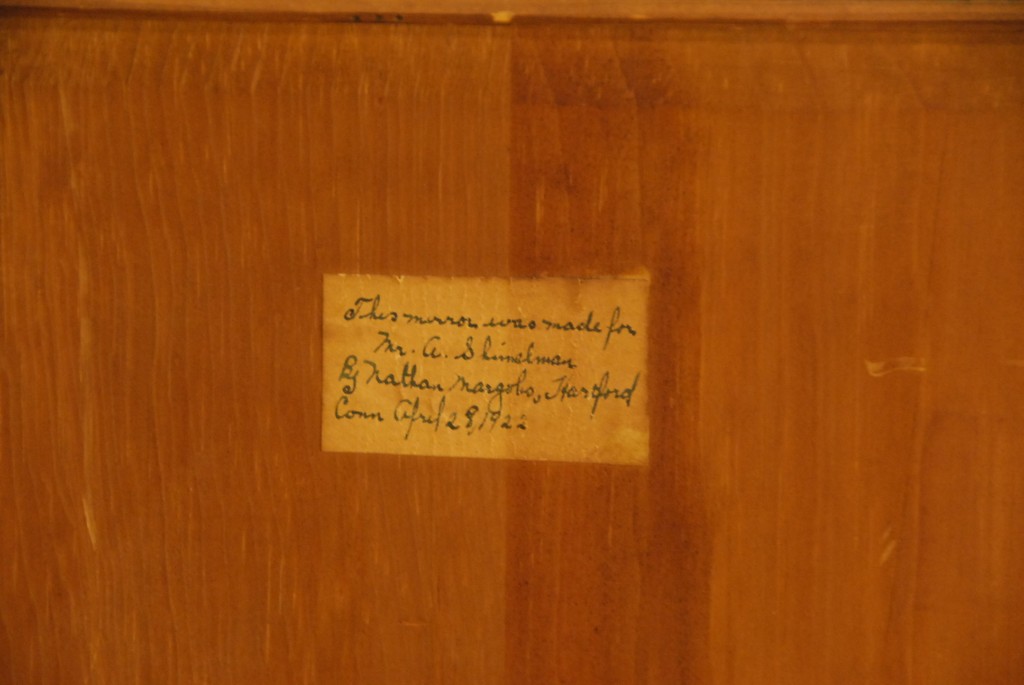 This mirror was made for
Mr. A. Shimelman
By Nathan Margolis, Hartford
Conn April 28, 1922